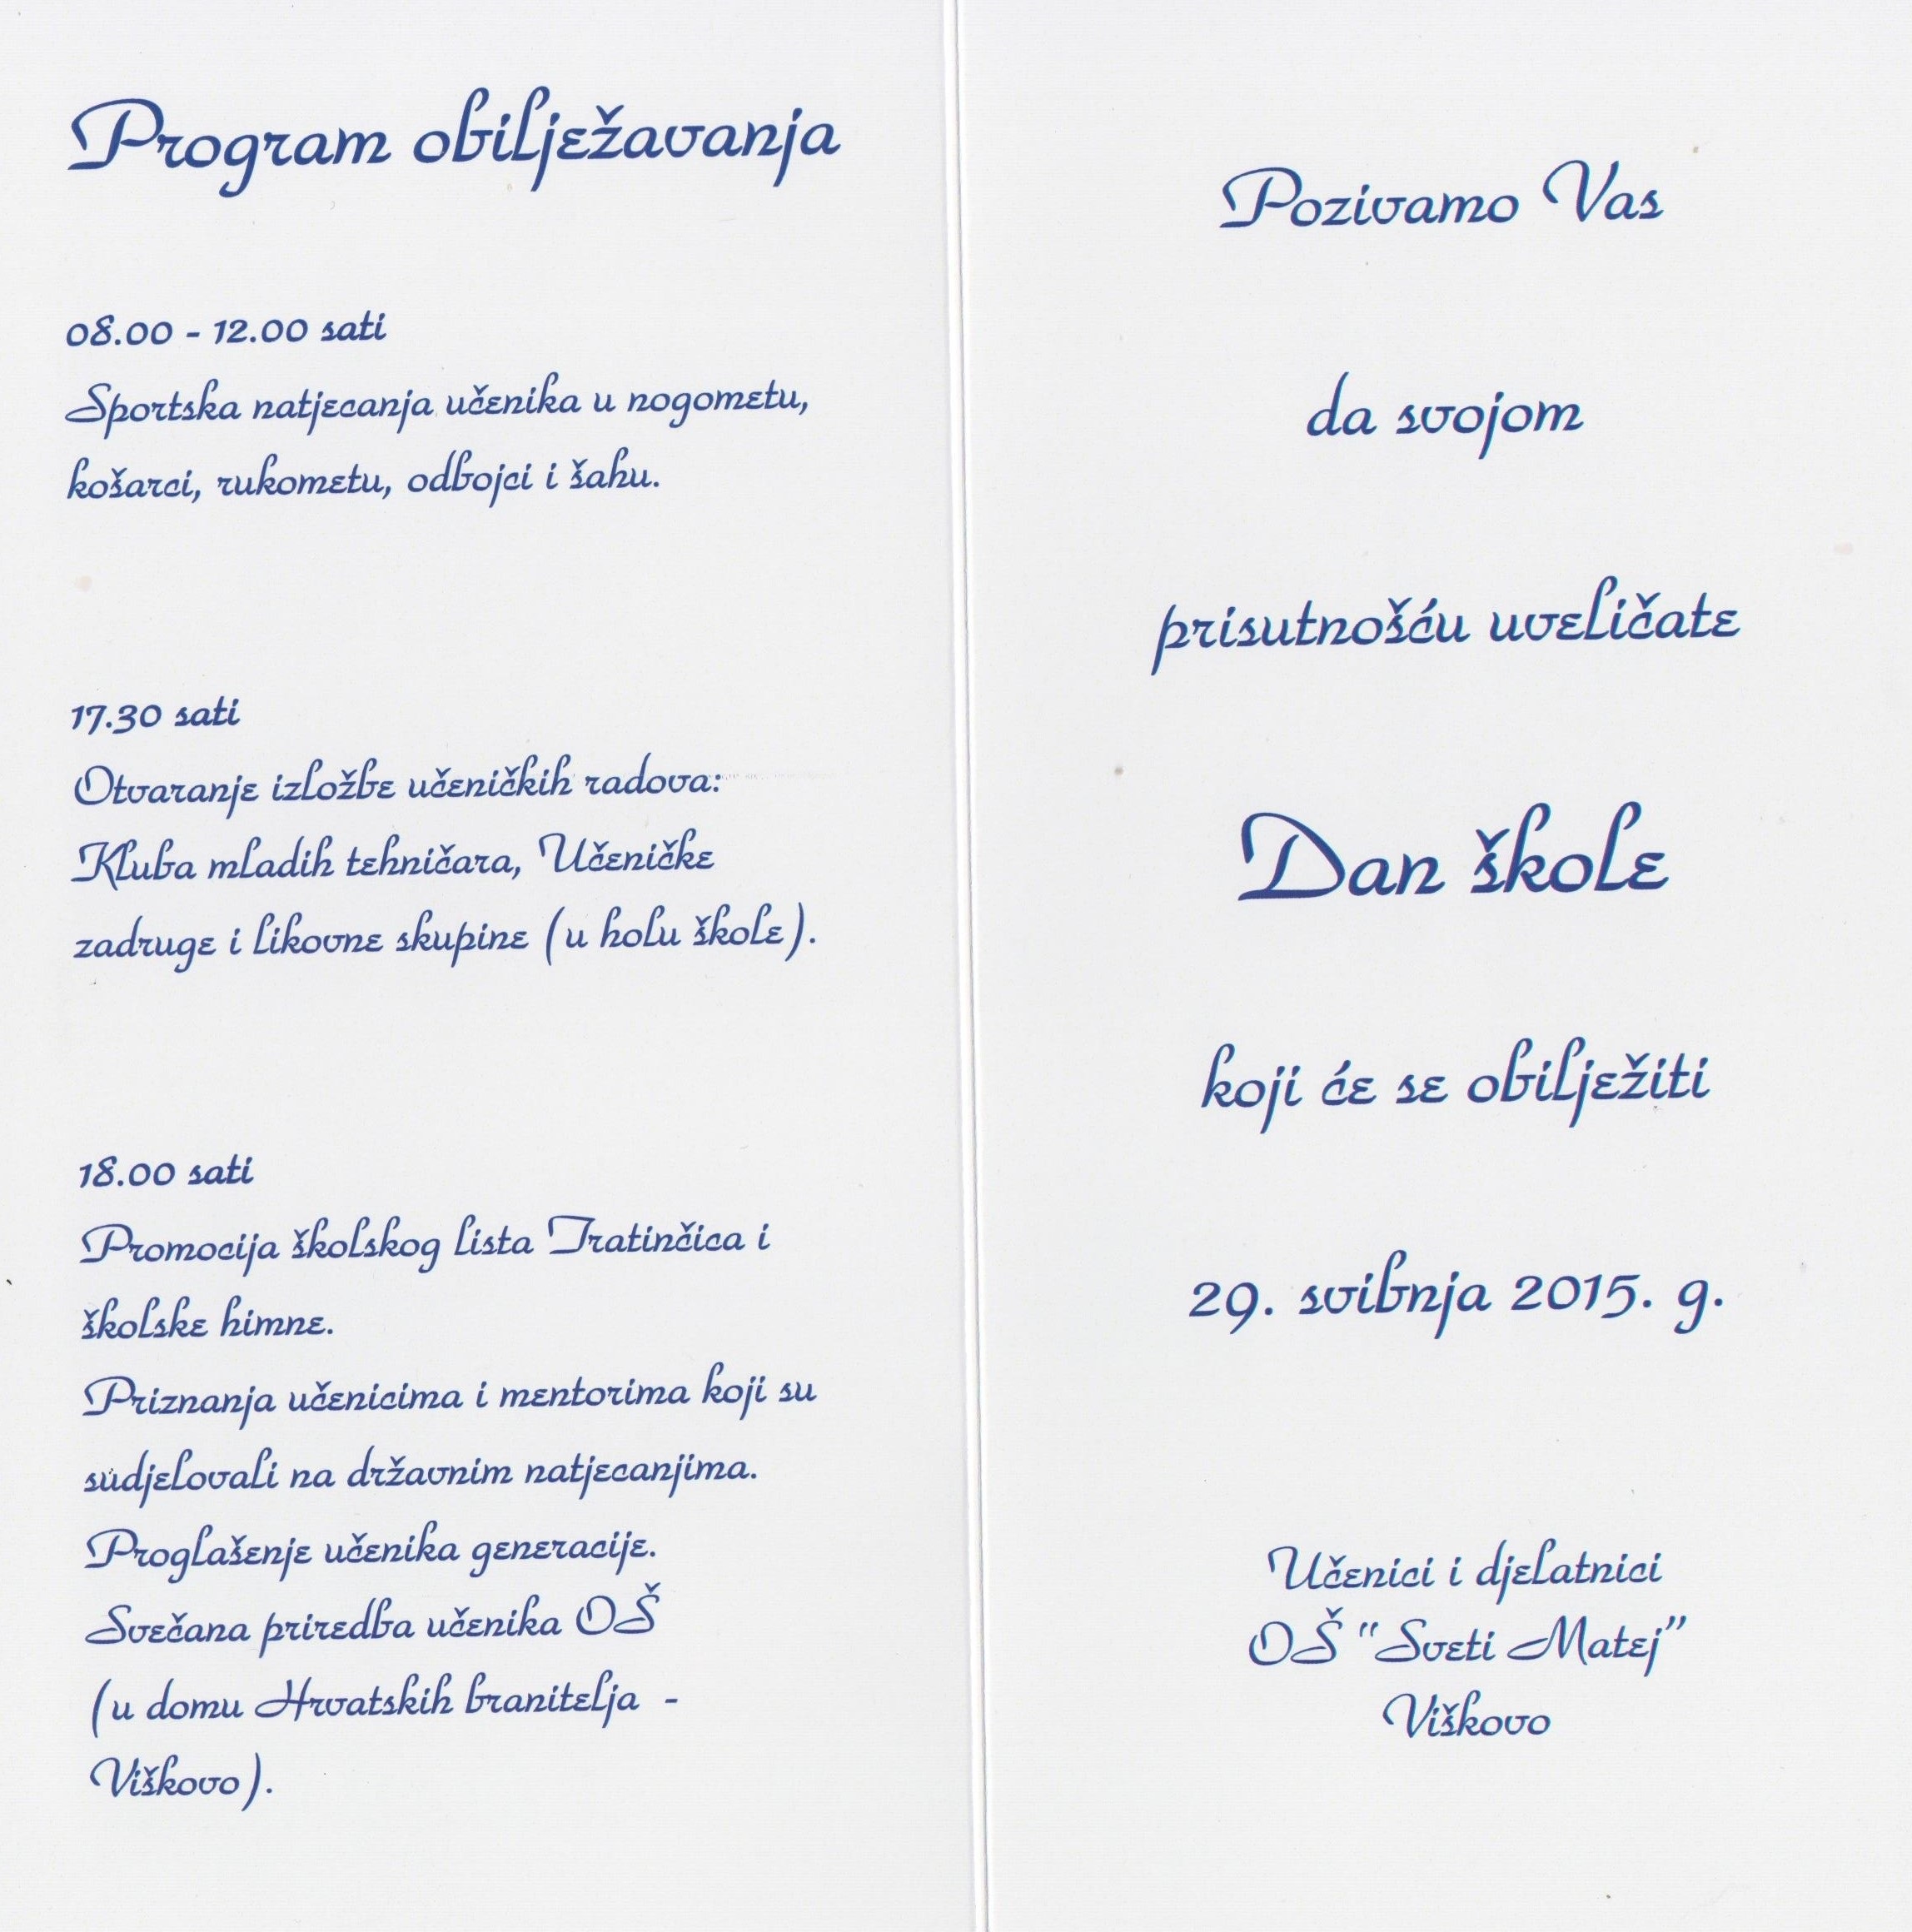 Program obilježavanja
08.00 - 12.00 sati
Sportska natjecanja učenika u nogometu,
košarci, rukometu, odbojci i šahu.
17.30 sati
Otvaranje izložbe učeničkih radova:
Kluba mladih tehničara, Učeničke
zadruge i likovne skupine (u holu škole).
18.00 sati
Promocija školskog lista Tratinčica i
školske himne.
Priznanja učenicima i mentorima koji su
sudjelovali na državnim natjecanjima.
Proglašenje učenika generacije.
Svečana priredba učenika OŠ
(u domu Hrvatskih branitelja -
Viškovo).
Pozivamo Vas
da svojom
prisutnošću uveličate
Dan škole
koji će se obilježiti
29. svibnja 2015. g.
Učenici i djelatnici
OŠ "Sveti Matej"
Viškovo